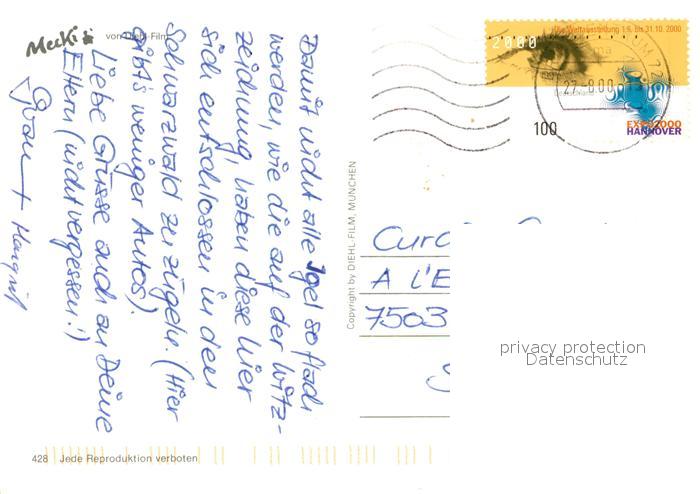 Mecki
von Diehl-Film
Damit nicht alle Igel so flach
werden, wie die auf der Witz-
zeichnung, haben diese hier
sich entschlossen in den
Schwarzwald zu zügeln. (Hier
gibt's weniger Autos).
Liebe Grüsse auch an Deine
Eltern (nicht vergessen!)
428 Jede Reproduktion verboten
Copyright by DIEHL-FILM, MÜNCHEN
Weltausstellung 1.6. bis 31.10. 2000
2000
100
EXPO2000
HANNOVER
A l'E
7503
privacy protection
Datenschutz